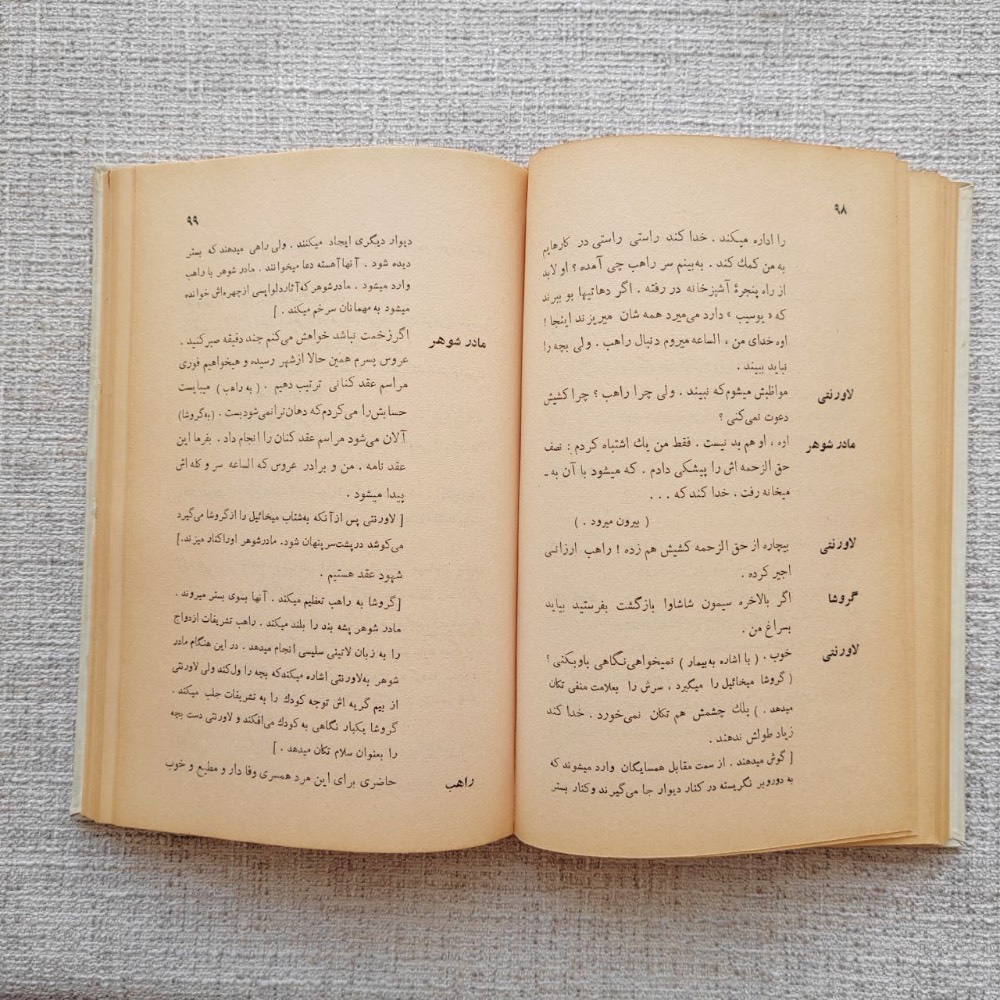 ۹۸
را اداره میکند . خدا کند راستی راستی در کارهایم
به من کمك کند . به‌بینم سر راهب چی آمده ؟ او لابد
از راه پنجرهٔ آشپزخانه در رفته . اگر دهاتیها بو ببرند
که « یوسیب » دارد می‌میرد همه شان میریزند اینجا !
اوه خدای من ، الساعه میروم دنبال راهب . ولی بچه را
نباید ببیند .
لاورنتی مواظبش میشوم که نبیند . ولی چرا راهب ؟ چرا کشیش
دعوت نمی‌کنی ؟
مادر شوهر اوه ، او هم بد نیست . فقط من یك اشتباه کردم : نصف
حق الزحمه اش را پیشکی دادم . که میشود با آن به ـ
میخانه رفت . خدا کند که . . .
( بیرون میرود . )
لاورنتی بیچاره از حق الزحمه کشیش هم زده ! راهب ارزانی
اجیر کرده .
گروشا اگر بالاخره سیمون شاشاوا بازگشت بفرستید بیاید
بسراغ من .
لاورنتی خوب . ( با اشاره به‌بیمار ) نمیخواهی‌نگاهی باوبکنی ؟
( گروشا میخائیل را میگیرد ، سرش را بعلامت منفی تکان
میدهد . ) پلك چشمش هم تکان نمی‌خورد . خدا کند
زیاد طولش ندهند .
[ گوش میدهند . از سمت مقابل همسایگان وارد میشوند که
به دوروبر نگریسته در کنار دیوار جا می‌گیرند وکنار بستر
۹۹
دیوار دیگری ایجاد میکنند . ولی راهی میدهند که بستر
دیده شود . آنها آهسته دعا میخوانند . مادر شوهر با راهب
وارد میشود . مادرشوهر که آثار دلواپسی از چهره‌اش خوانده
میشود به مهمانان سرخم میکند . ]
مادر شوهر اگر زخمت نباشد خواهش می‌کنم چند دقیقه صبر کنید .
عروس پسرم همین حالا از شهر رسیده و میخواهیم فوری
مراسم عقد کنانی ترتیب دهیم . ( به راهب ) میبایست
حسابش‌را می‌کردم که دهان ترا نمی‌شود بست . (به گروشا)
آلان می‌شود مراسم عقد کنان را انجام داد . بفرما این
عقد نامه . من و برادر عروس که الساعه سر و کله اش
پیدا میشود .
[ لاورنتی پس از آنکه به‌شتاب میخائیل را از گروشا می‌گیرد
می‌کوشد در پشت‌سر پنهان شود. مادرشوهر اوراکنار میزند.]
شهود عقد هستیم .
[گروشا به راهب تعظیم میکند . آنها بسوی بستر میروند .
مادر شوهر پشه بند را بلند میکند . راهب تشریفات ازدواج
را به زبان لاتینی سلیسی انجام میدهد . در این هنگام مادر
شوهر به‌لاورنتی اشاره میکند که بچه را ول‌کند ولی لاورنتی
از بیم گریه اش توجه کودك را به تشریفات جلب میکند .
گروشا یکبار نگاهی به کودك می‌افکند و لاورنتی دست بچه
را بعنوان سلام تکان میدهد . ]
راهب حاضری برای این مرد همسری وفا دار و مطیع و خوب